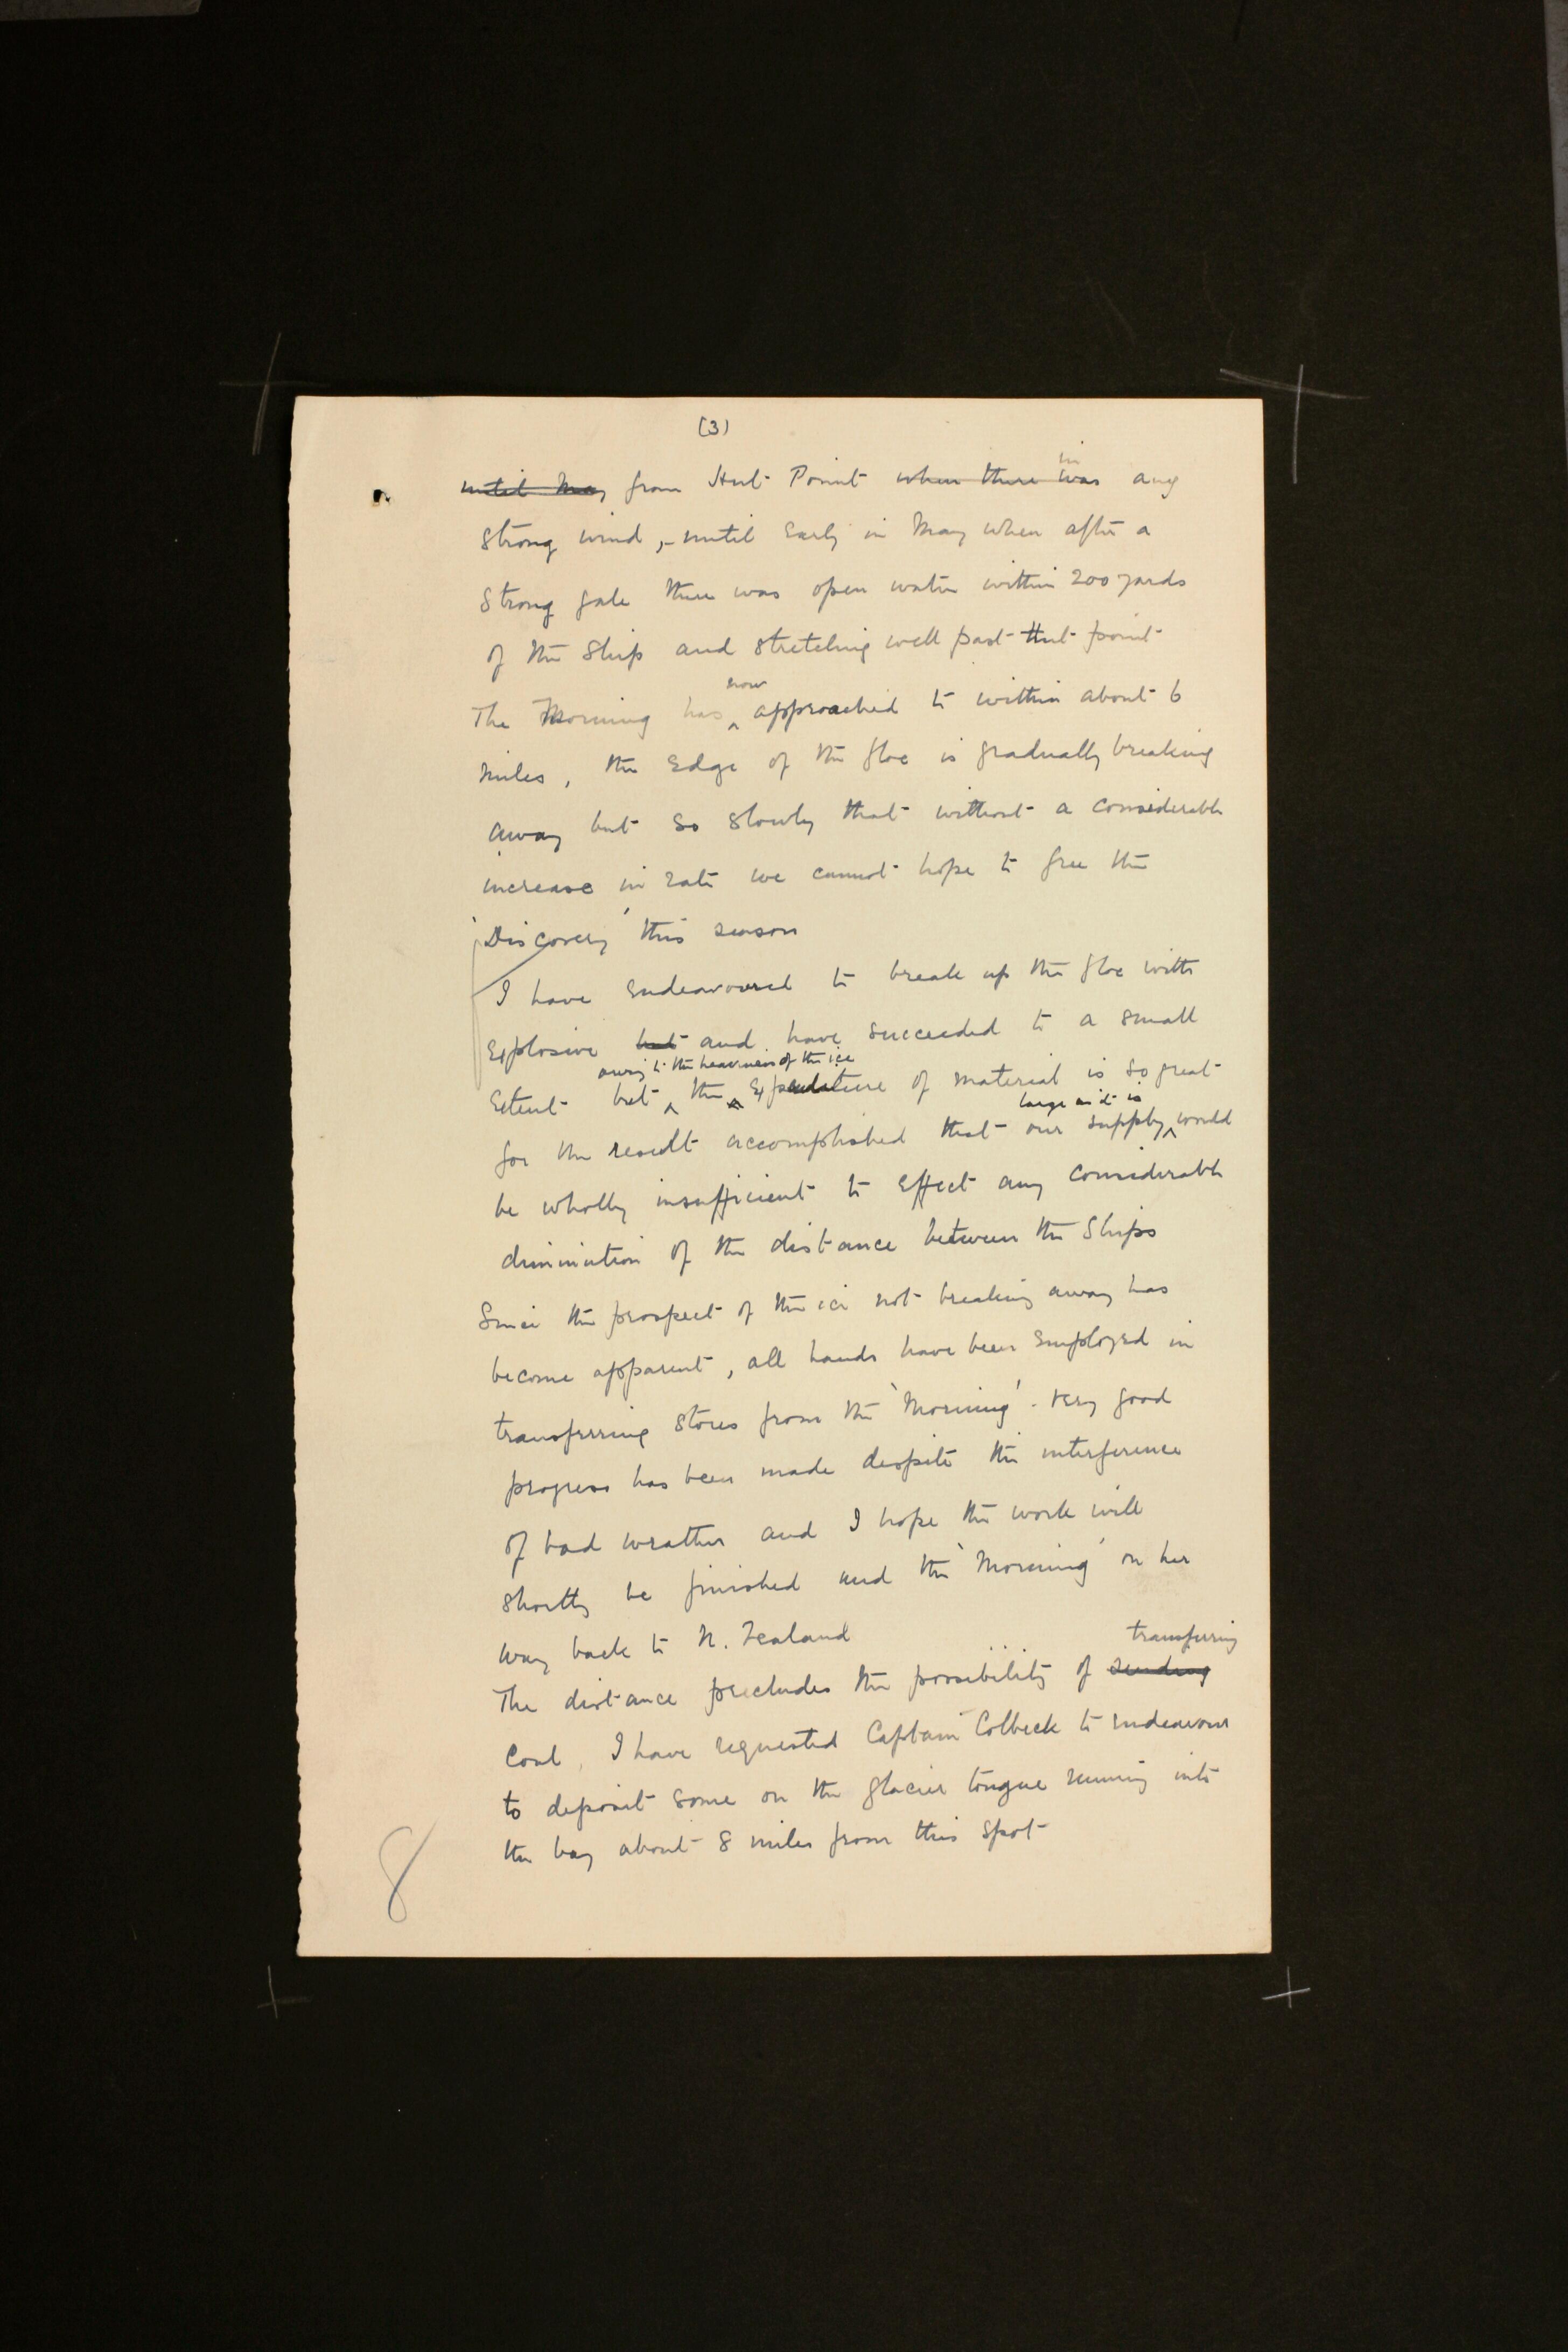 (3)
until May from Hut Point when there was in any
strong wind, - until early in May when after a
strong gale there was open water within 200 yards
of the ship and stretching well past Hut point
now
The Morning has ^ approached to within about 6
miles, the edge of the floe is gradually breaking
away but so slowly that without a considerable
increase in rate we cannot hope to free the
'Discovery' this season
I have endeavoured to break up the floe with
explosive but and have succeeded to a small
owing to the heaviness of the ice
extent but ^ the ^ expenditure of material is so great
large as it is
for the result accomplished that our supply ^ would
be wholly insufficient to effect any considerable
diminution of the distance between the ships
Since the prospect of the ice not breaking away has
become apparent, all hands have been employed in
transferring stores from the 'Morning'. Very good
progress has been made despite the interference
of bad weather and I hope the work will
shortly be finished and the 'Morning' on her
way back to N. Zealand
transferring
The distance precludes the possibility of sending
coal, I have requested Captain Colbeck to endeavour
to deposit some on the glacier tongue running into
the bay about 8 miles from this spot
8